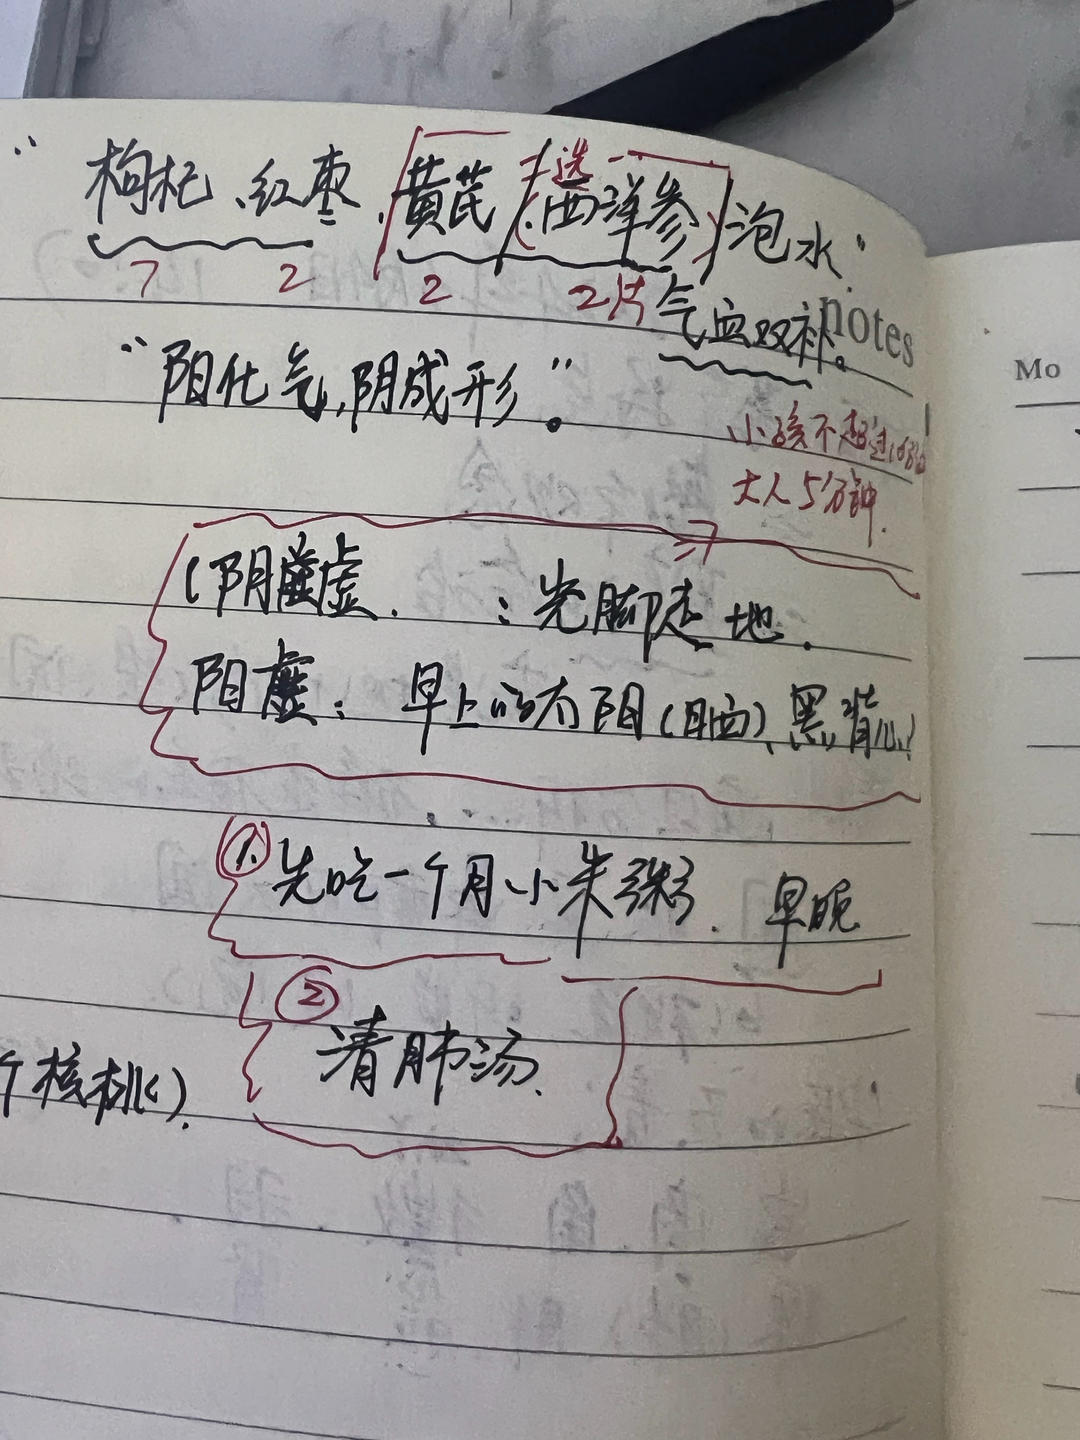 “枸杞、红枣、黄芪/西洋参/泡水”
二选一
7 2 2 2片 气血双补。
notes
Mo
“阳化气,阴成形”。
小孩不超过
大人5分钟.
(阴虚. :光脚走地.
阳虚: 早上的太阳(日晒)、黑背心)
①先吃一个月小米粥. 早晚
②
清肺汤.
个核桃).